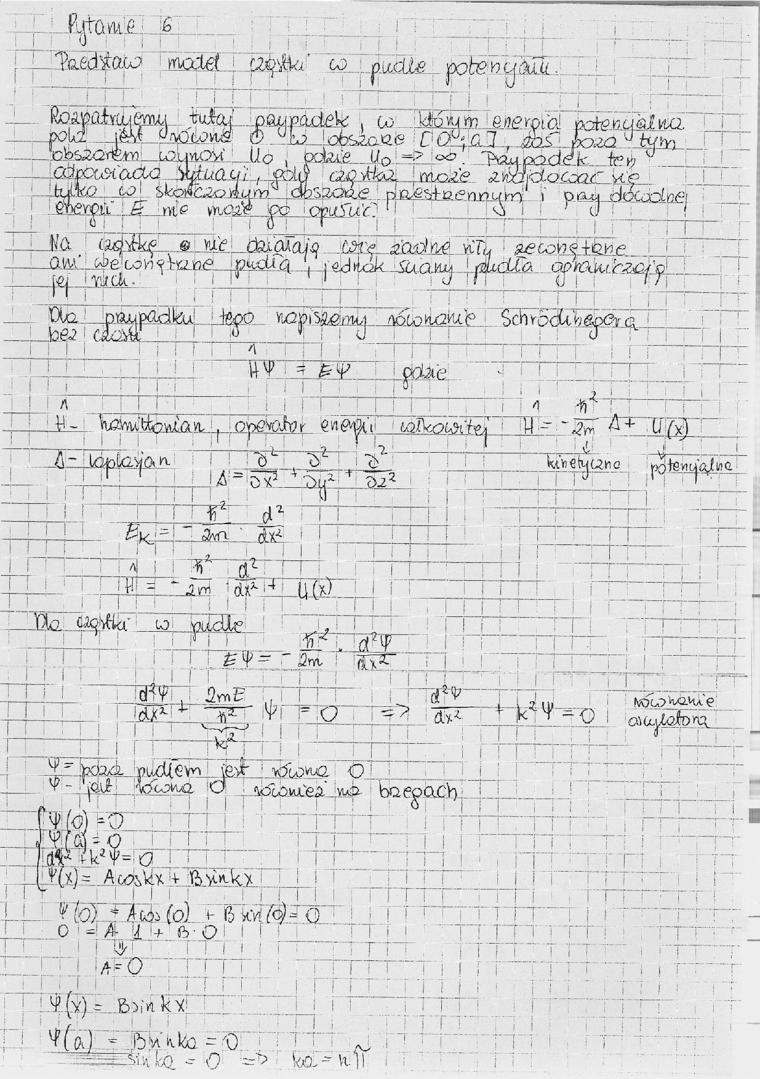 Pytanie 6
Przedstaw model cząstki w pudle potencjału.
Rozpatrujemy tutaj przypadek, w którym energia potencjalna
pola jest równa 0 w obszarze [0;a], zaś poza tym
obszarem wynosi U₀, gdzie U₀ => ∞. Przypadek ten
odpowiada sytuacji, gdy cząstka może znajdować się
tylko w skończonym obszarze przestrzennym i przy dowolnej
energii E nie może go opuścić.
Na cząstkę nie działają więc żadne siły zewnętrzne
ani wewnętrzne pudła, jednak ściany pudła ograniczają
jej ruch.
Dla przypadku tego napiszemy równanie Schrödinegera
bez czasu
Ĥψ = Eψ gdzie
Ĥ - hamiltonian, operator energii całkowitej Ĥ = -ħ²/2m Δ + U(x)
kinetyczna potencjalna
Δ - laplasjan Δ = ∂²/∂x² + ∂²/∂y² + ∂²/∂z²
E_K = -ħ²/2m · d²/dx²
Ĥ = -ħ²/2m d²/dx² + U(x)
Dla cząstki w pudle
Eψ = -ħ²/2m · d²ψ/dx²
d²ψ/dx² + 2mE/ħ² ψ = 0 => d²ψ/dx² + k²ψ = 0 równanie oscylatora
k²
ψ = poza pudłem jest równa 0
ψ - jest równa 0 również na brzegach
ψ(0) = 0
ψ(a) = 0
dx² + k²ψ = 0
ψ(x) = A cos kx + B sin kx
ψ(0) = A cos(0) + B sin(0) = 0
0 = A · 1 + B · 0
⇓
A = 0
ψ(x) = B sin kx
ψ(a) = B sin ka = 0
sin ka = 0 => ka = nπ